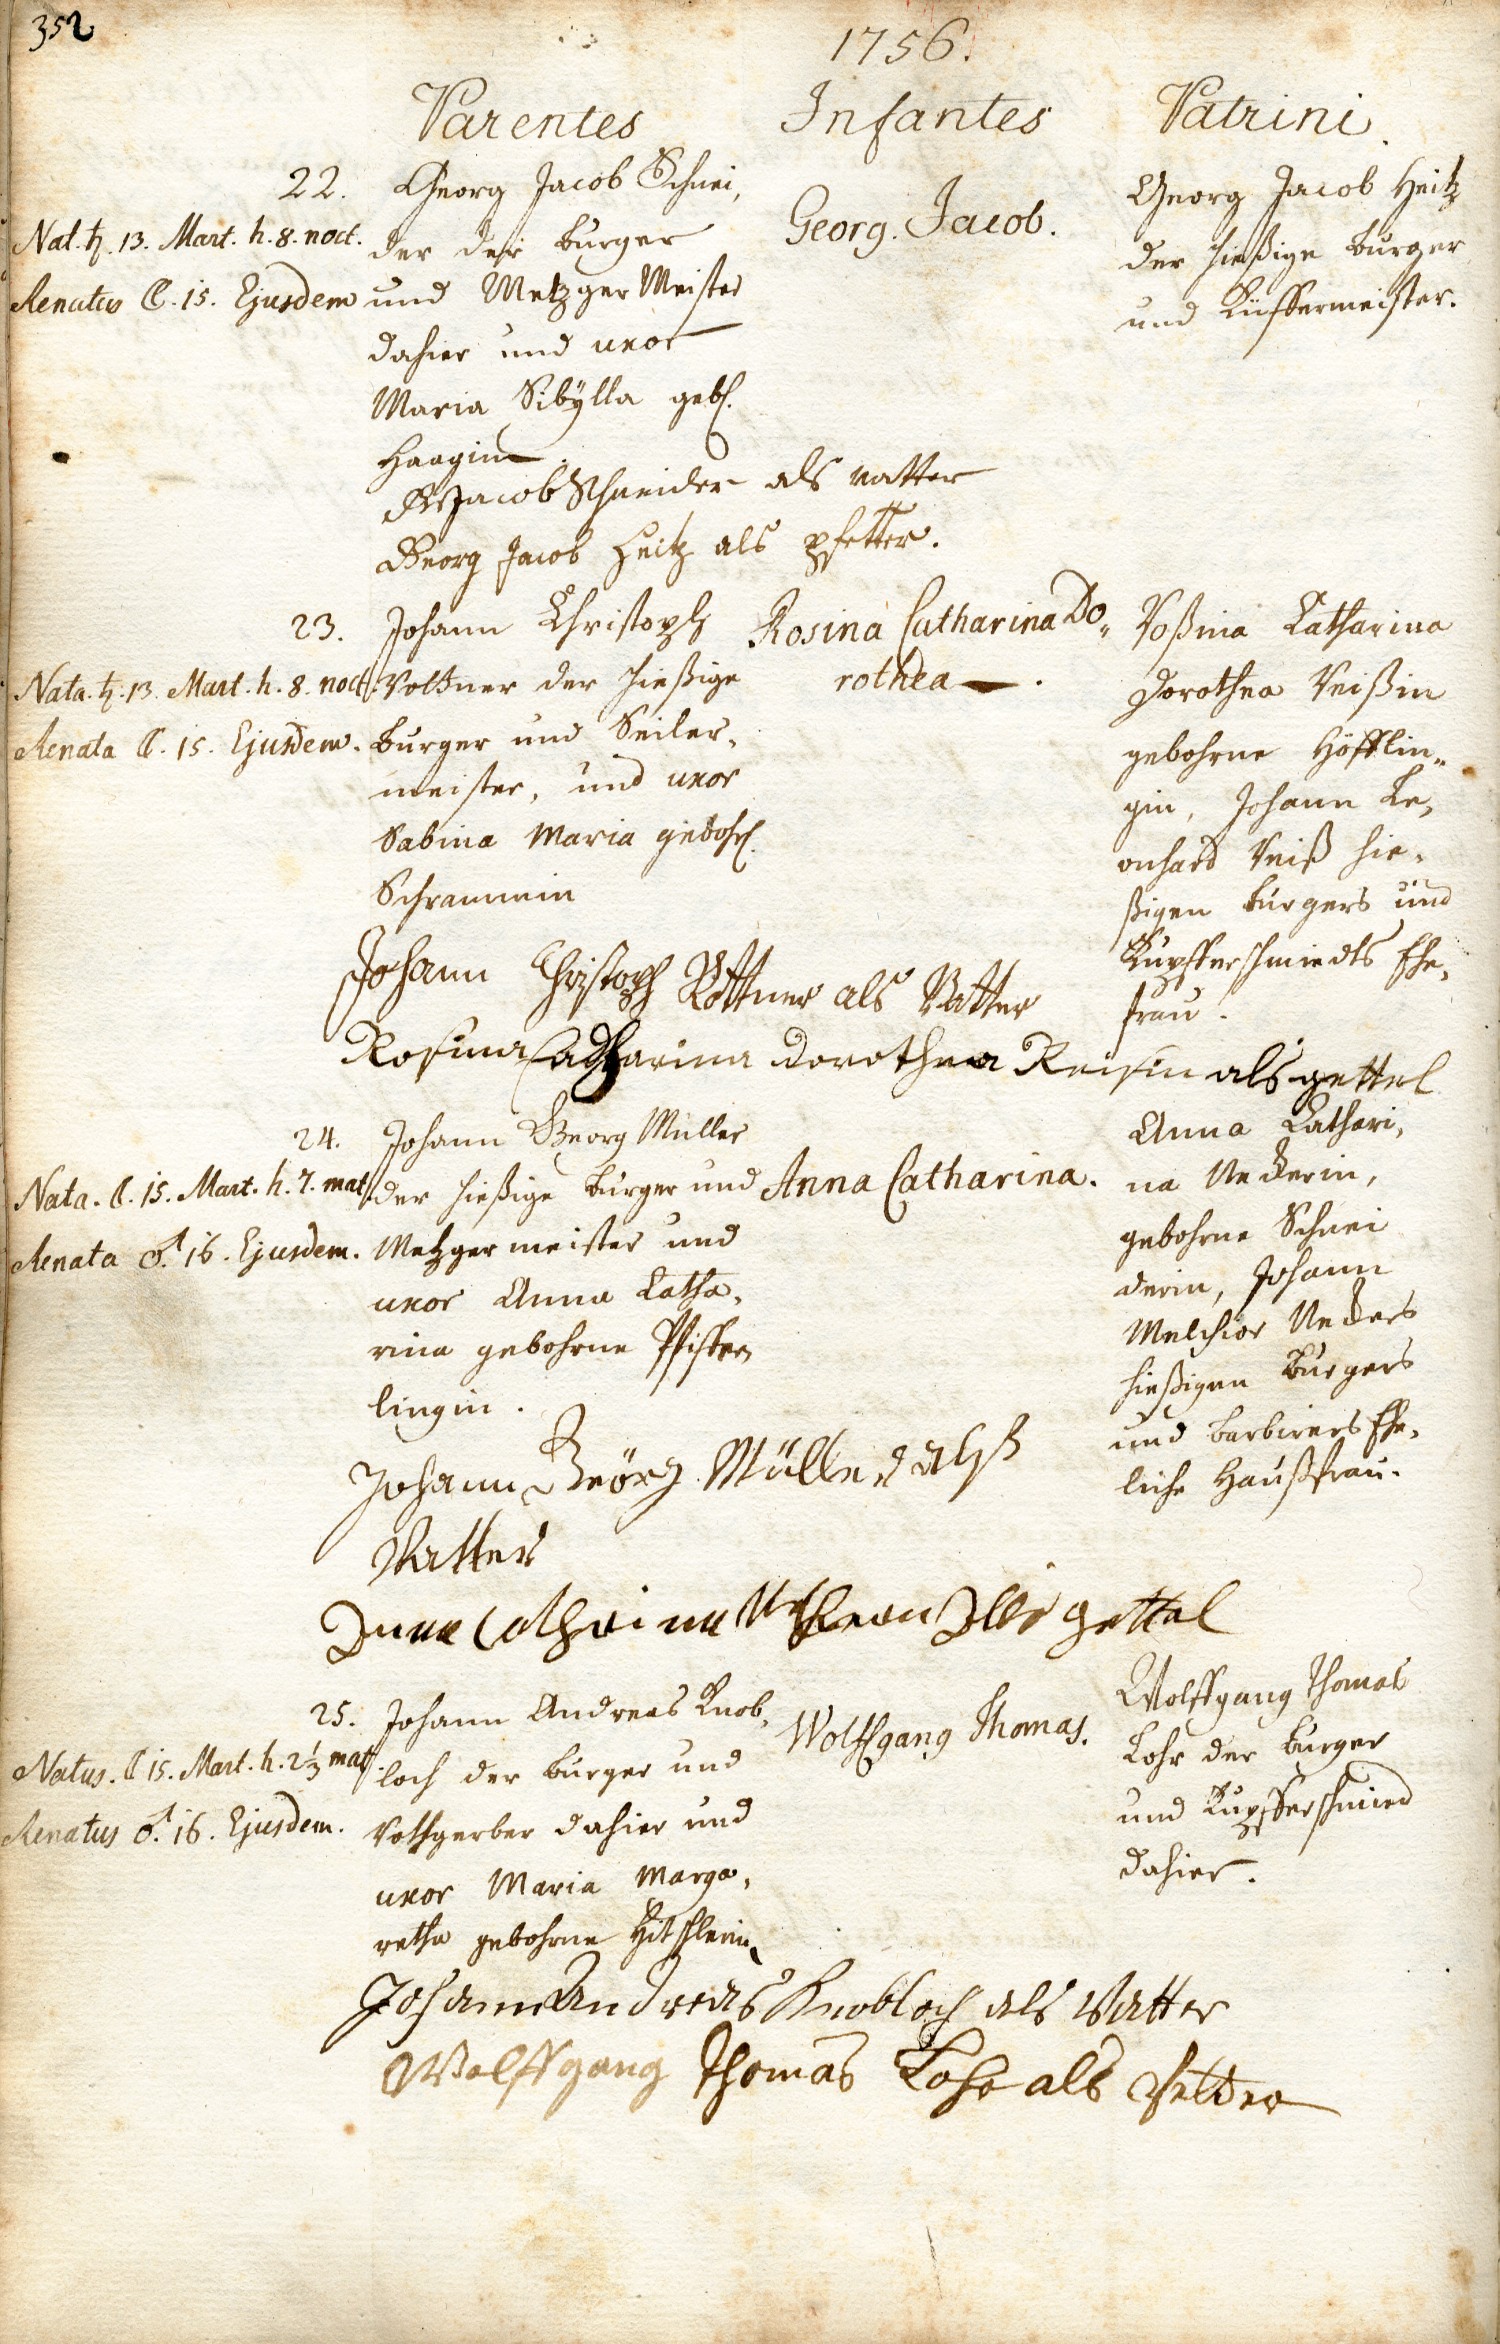 352
1756.
Parentes Infantes Patrini
22.
Nat. ♄. 13. Mart. h. 8. noct.
Renatus ☾. 15. Ejusdem
Georg Jacob Schnei,
der der burger
und Metzger Meister
dahier und uxor
Maria Sibÿlla geb.
Haagin
Georg. Jacob.
Georg Jacob Heitz
der hießige burger
und Küffermeister.
Jacob Schneider als vatter
Georg Jacob Heitz als pfetter.
23.
Nata. ♄. 13. Mart. h. 8. noct.
Renata ☾. 15. Ejusdem.
Johann Christoph
Rottner der hießige
burger und Seiler,
meister, und uxor
Sabina Maria gebohr.
Schrammin
Rosina Catharina Do,,
rothea.
Roßina Catharina
Dorothea Reißin
gebohrne Höfflin,,
gin, Johann Le,
onhard Reiß hie,
ßigen burgers und
Kupfferschmiedts Ehe,
frau.
Johann Christoph Rottner als Vatter
Rosina Catharina Dorothea Reisin als gettel
24.
Nata. ☾. 15. Mart. h. 7. mat.
Renata ♂. 16. Ejusdem.
Johann Georg Müller
der hießige burger und
Metzger meister und
uxor Anna Catha,
rina gebohrne Pfiffer,
lingin.
Anna Catharina.
Anna Cathari,
na Ueckerin,
gebohrne Schnei
derin, Johann
Melchior Ueckers
hießigen burgers
und barbirers Ehe,
liche Haußfrau.
Johann Geörg Müller alß
Vatter
gettel
25.
Natus. ☾ 15. Mart. h. 2 1/3 mat.
Renatus ♂. 16. Ejusdem.
Johann Andreas Knob,
loch der burger und
Rothgerber dahier und
uxor Maria Marga,
retha gebohrne Hitschlerin
Wolffgang Thomas.
Wolffgang Thomas
Lohr der burger
und Kupfferschmied
dahier.
Johann Andreas Knobloch als Vatter
Wolffgang Thomas Lohr als Petter